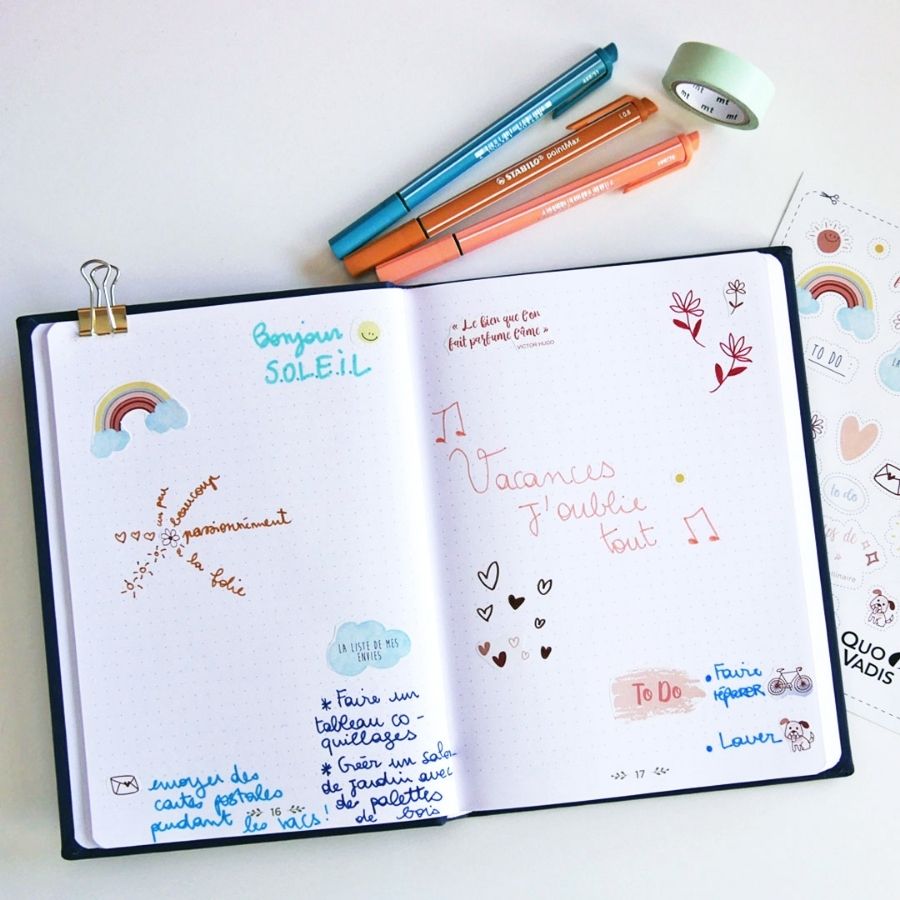 STABILO® pointMax
0.8
mt mt mt
Bonjour
S.O.L.E.i.L
un peu
beaucoup
passionnément
à
la folie
LA LISTE DE MES
ENVIES
* Faire un
tableau co-
quillages
* Créer un salon
de jardin avec
de palettes
de bois
envoyer des
cartes postales
pendant les vacs !
16
« Le bien que l'on
fait parfume l'âme »
VICTOR HUGO
Vacances
j'oublie
tout
To Do
• Faire
réparer
• Laver
17
TO DO
to do
QUO
VADIS